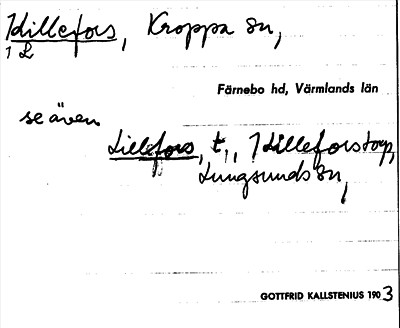 1 Lillefors, Kroppa sn,
1 L
Färnebo hd, Värmlands län
se även
Lillefors, t.,, 1 Lilleforstorp,
Lungsunds sn,
GOTTFRID KALLSTENIUS 1903